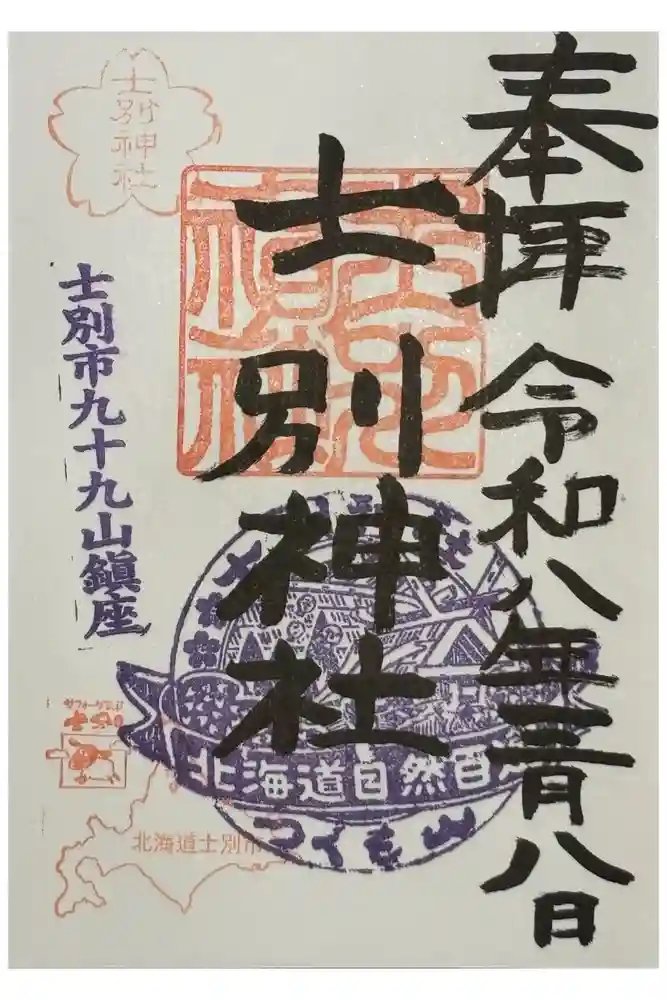 奉拝 令和八年三月八日
士別神社
士別神社
士別市九十九山鎮座
北海道自然百
つくも山
サフォークランド
士別
北海道士別市